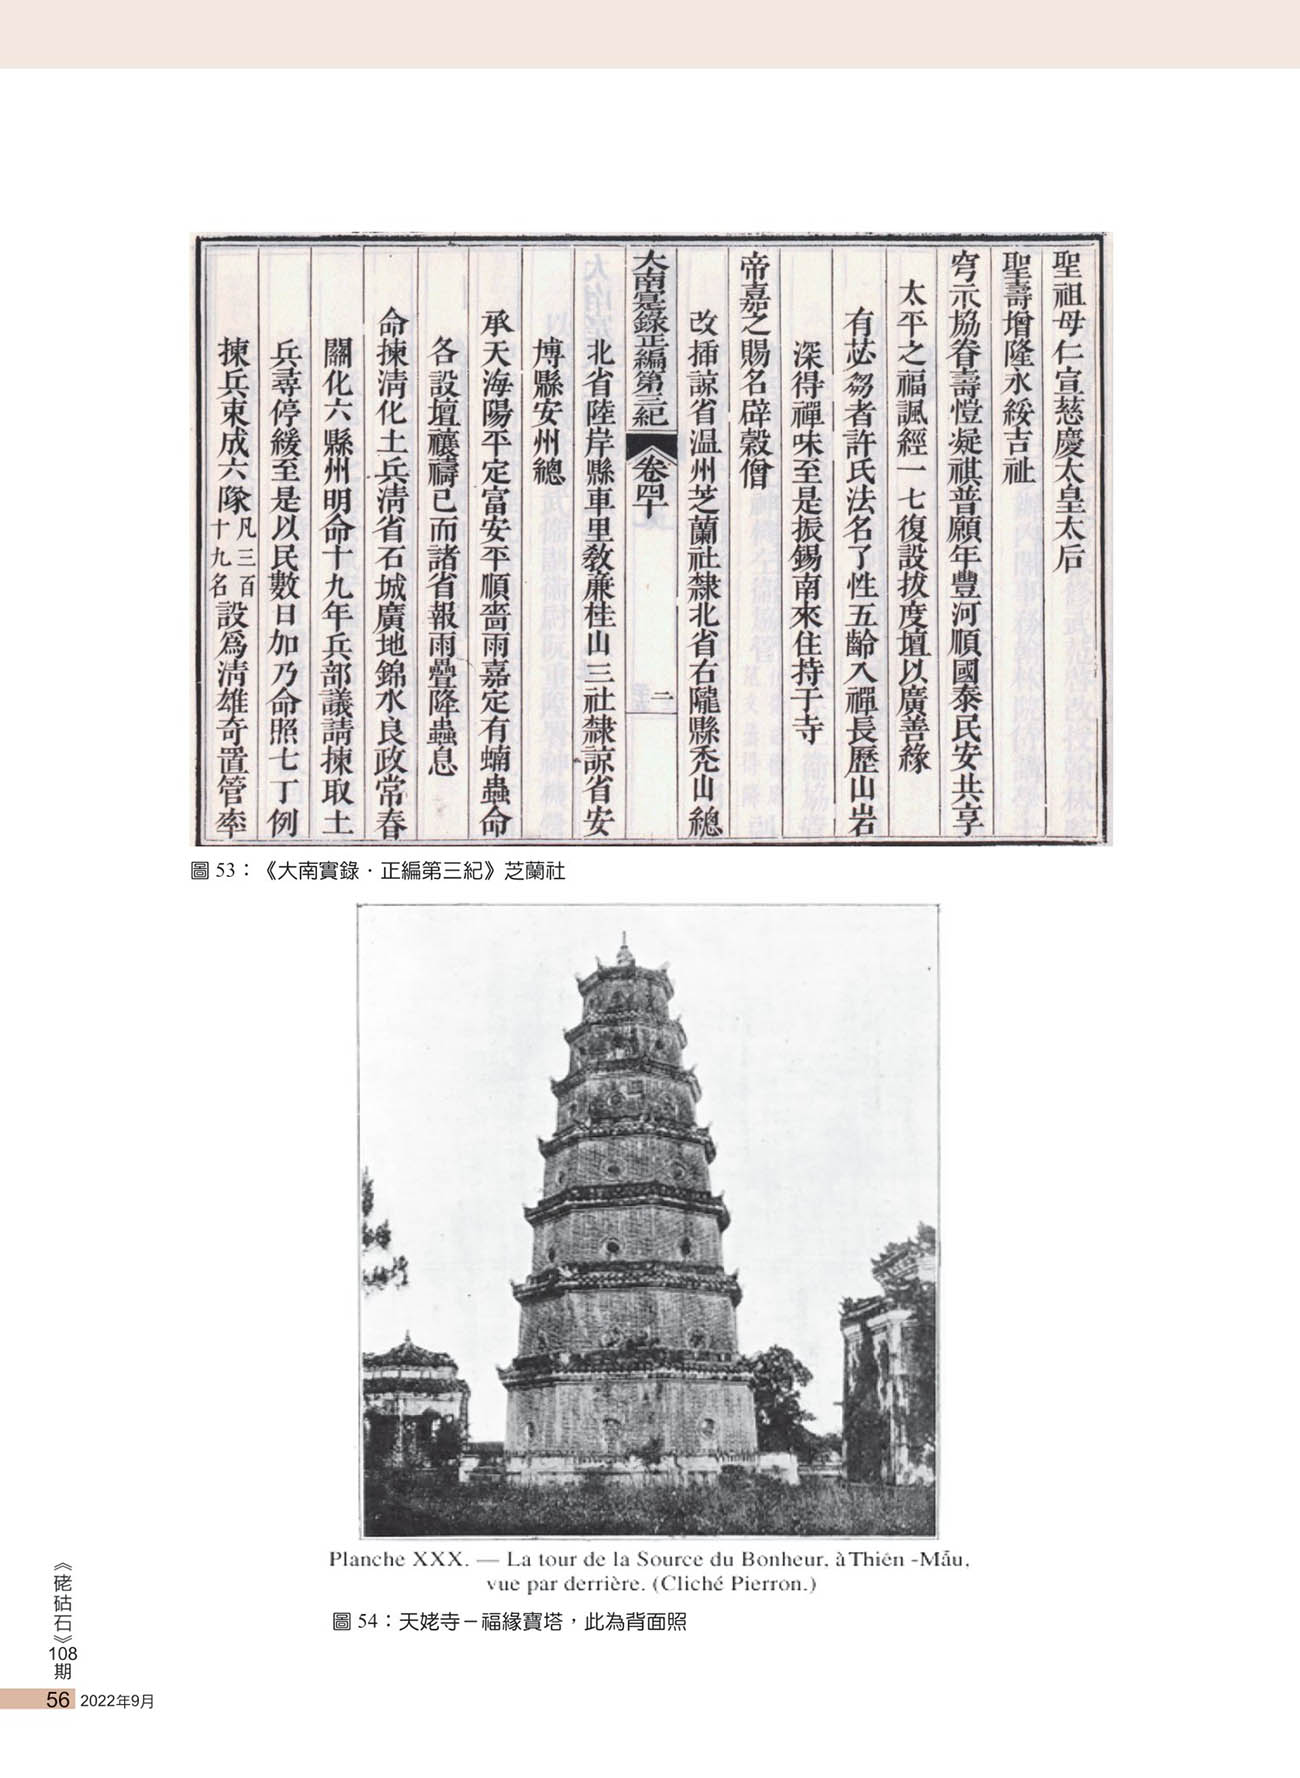 聖祖母仁宣慈慶太皇太后
聖壽增隆永綏吉祉
穹示協眷壽愷凝祺普願年豐河順國泰民安共享
太平之福諷經一七復設拔度壇以廣善緣
有苾芻者許氏法名了性五齡入禪長歷山岩
深得禪味至是振錫南來住持于寺
帝嘉之賜名辟穀僧
改插諒省温州芝蘭社隸北省右隴縣禿山總
大南寔錄正編第三紀 卷四十 二
北省陸岸縣車里教蕭桂山三社隸諒省安
博縣安州總
承天海陽平定富安平順嗇雨嘉定有蝻蟲命
各設壇禳禱已而諸省報雨疊降蟲息
命揀淸化土兵淸省石城廣地錦水良政常春
關化六縣州明命十九年兵部議請揀取土
兵尋停緩至是以民數日加乃命照七丁例
揀兵束成六隊凡三百十九名設爲淸雄奇置管率
圖 53：《大南實錄．正編第三紀》芝蘭社
Planche XXX. — La tour de la Source du Bonheur, à Thiên -Mẫu,
vue par derrière. (Cliché Pierron.)
圖 54：天姥寺－福緣寶塔，此為背面照
《硓𥑮石》108期
56 2022年9月